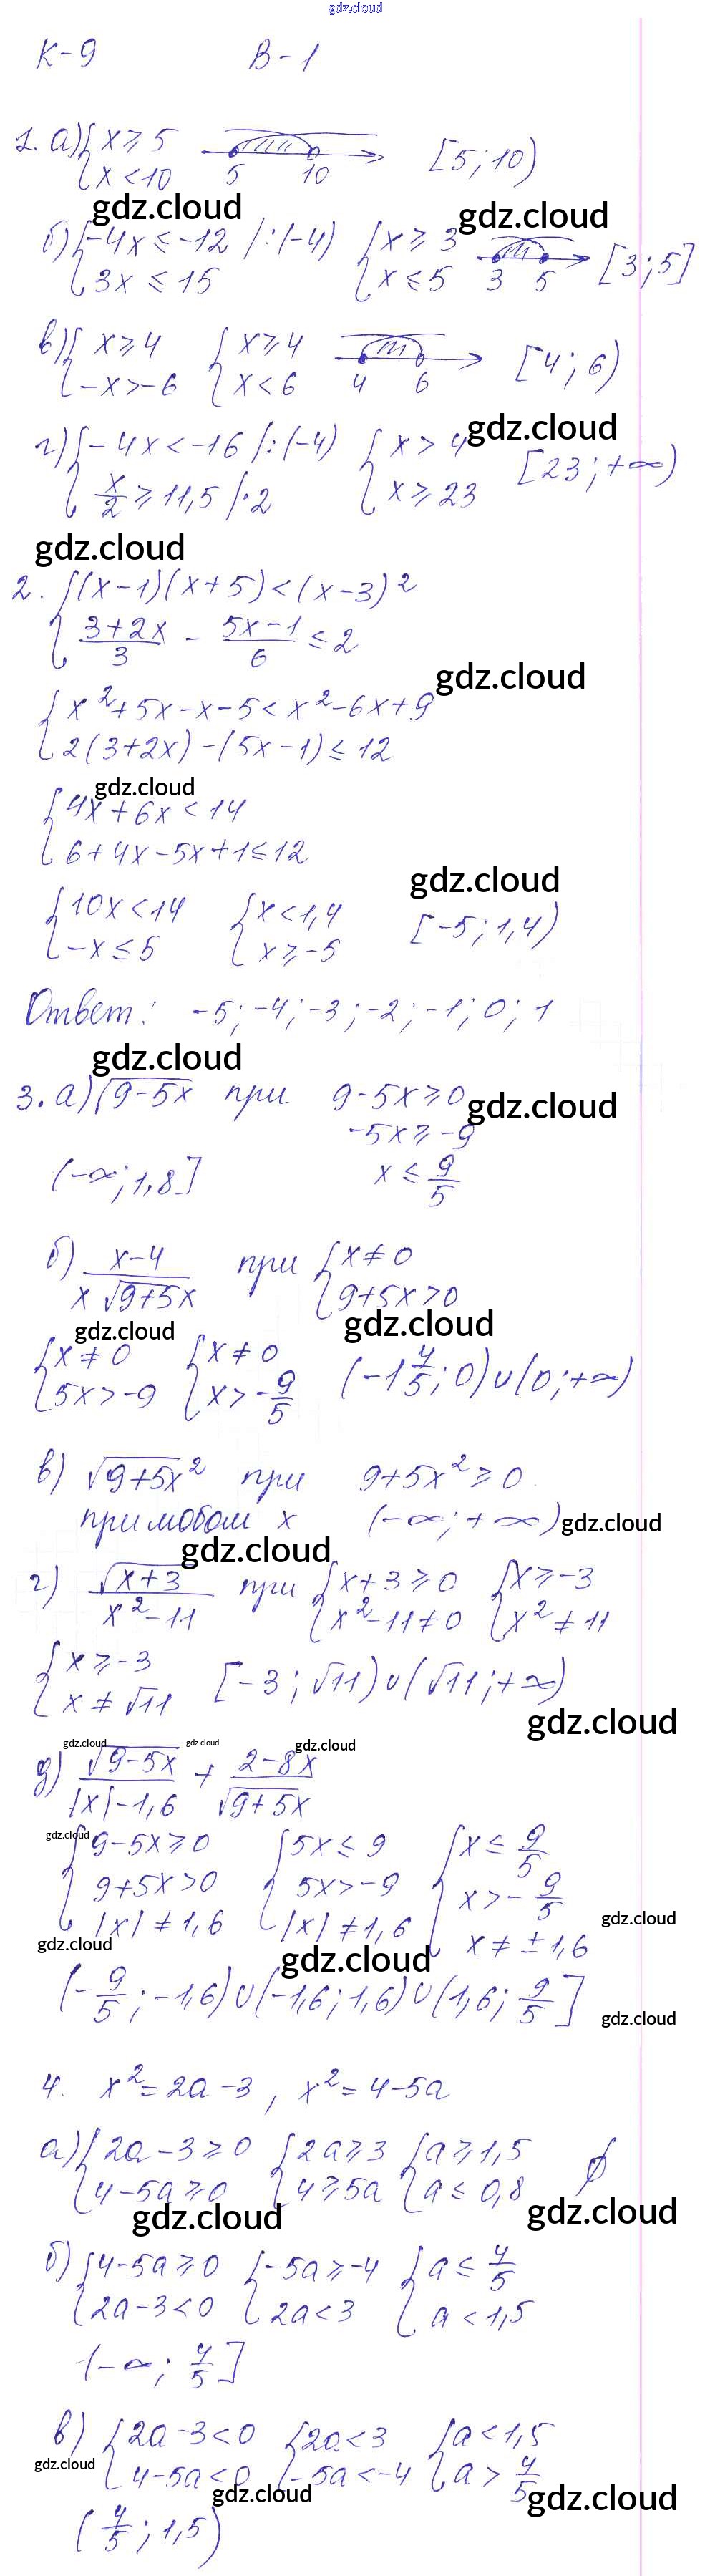 gdz.cloud
К-9 В-1
1. а) { x ≥ 5 5 10 [5; 10)
{ x < 10
gdz.cloud gdz.cloud
б) { -4x ≤ -12 /:(-4) { x ≥ 3 3 5 [3; 5]
{ 3x ≤ 15 { x ≤ 5
в) { x ≥ 4 { x ≥ 4 4 6 [4; 6)
{ -x > -6 { x < 6
г) { -4x < -16 /:(-4) { x > 4 [23; +∞)
gdz.cloud
{ x/2 ≥ 11,5 /·2 { x ≥ 23
gdz.cloud
2. { (x-1)(x+5) < (x-3)²
{ (3+2x)/3 - (5x-1)/6 ≤ 2
gdz.cloud
{ x²+5x-x-5 < x²-6x+9
{ 2(3+2x)-(5x-1) ≤ 12
gdz.cloud
{ 4x+6x < 14
{ 6+4x-5x+1 ≤ 12
gdz.cloud
{ 10x < 14 { x < 1,4 [-5; 1,4)
{ -x ≤ 5 { x ≥ -5
Ответ: -5; -4; -3; -2; -1; 0; 1
gdz.cloud
3. а) √(9-5x) при 9-5x ≥ 0
gdz.cloud
-5x ≥ -9
(-∞; 1,8] x ≤ 9/5
б) (x-4)/(x√(9+5x)) при { x ≠ 0
{ 9+5x > 0
gdz.cloud gdz.cloud
{ x ≠ 0 { x ≠ 0 (-1 4/5; 0)∪(0; +∞)
{ 5x > -9 { x > -9/5
в) √(9+5x²) при 9+5x² ≥ 0
при любом x (-∞; +∞)
gdz.cloud
gdz.cloud
г) √(x+3)/(x²-11) при { x+3 ≥ 0 { x ≥ -3
{ x²-11 ≠ 0 { x² ≠ 11
{ x ≥ -3 [-3; √11)∪(√11; +∞)
{ x ≠ √11
gdz.cloud
gdz.cloud gdz.cloud gdz.cloud
д) √(9-5x)/(|x|-1,6) + (2-8x)/√(9+5x)
gdz.cloud
{ 9-5x ≥ 0 { 5x ≤ 9 { x ≤ 9/5
{ 9+5x > 0 { 5x > -9 { x > -9/5
{ |x| ≠ 1,6 { |x| ≠ 1,6 { x ≠ ±1,6
gdz.cloud
gdz.cloud gdz.cloud
(-9/5; -1,6)∪(-1,6; 1,6)∪(1,6; 9/5]
gdz.cloud
4. x² = 2a-3, x² = 4-5a
а) { 2a-3 ≥ 0 { 2a ≥ 3 { a ≥ 1,5 ∅
{ 4-5a ≥ 0 { 4 ≥ 5a { a ≤ 0,8
gdz.cloud gdz.cloud
б) { 4-5a ≥ 0 { -5a ≥ -4 { a ≤ 4/5
{ 2a-3 < 0 { 2a < 3 { a < 1,5
(-∞; 4/5]
в) { 2a-3 < 0 { 2a < 3 { a < 1,5
{ 4-5a < 0 { -5a < -4 { a > 4/5
gdz.cloud gdz.cloud gdz.cloud
(4/5; 1,5)